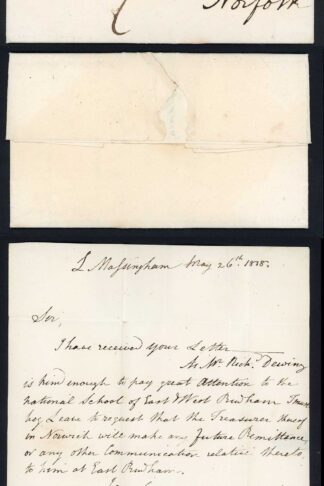 Norfolk
L Massingham May 26th. 1818.
Sir,
I have received your Letter
Mr. Wm. Richd. Dewing
is kind enough to pay great Attention to the
national School of East & West Rudham I must
beg Leave to request that the Treasurer thereof
in Norwich will make any future Remittance,
or any other Communication relative thereto,
to him at East Rudham.